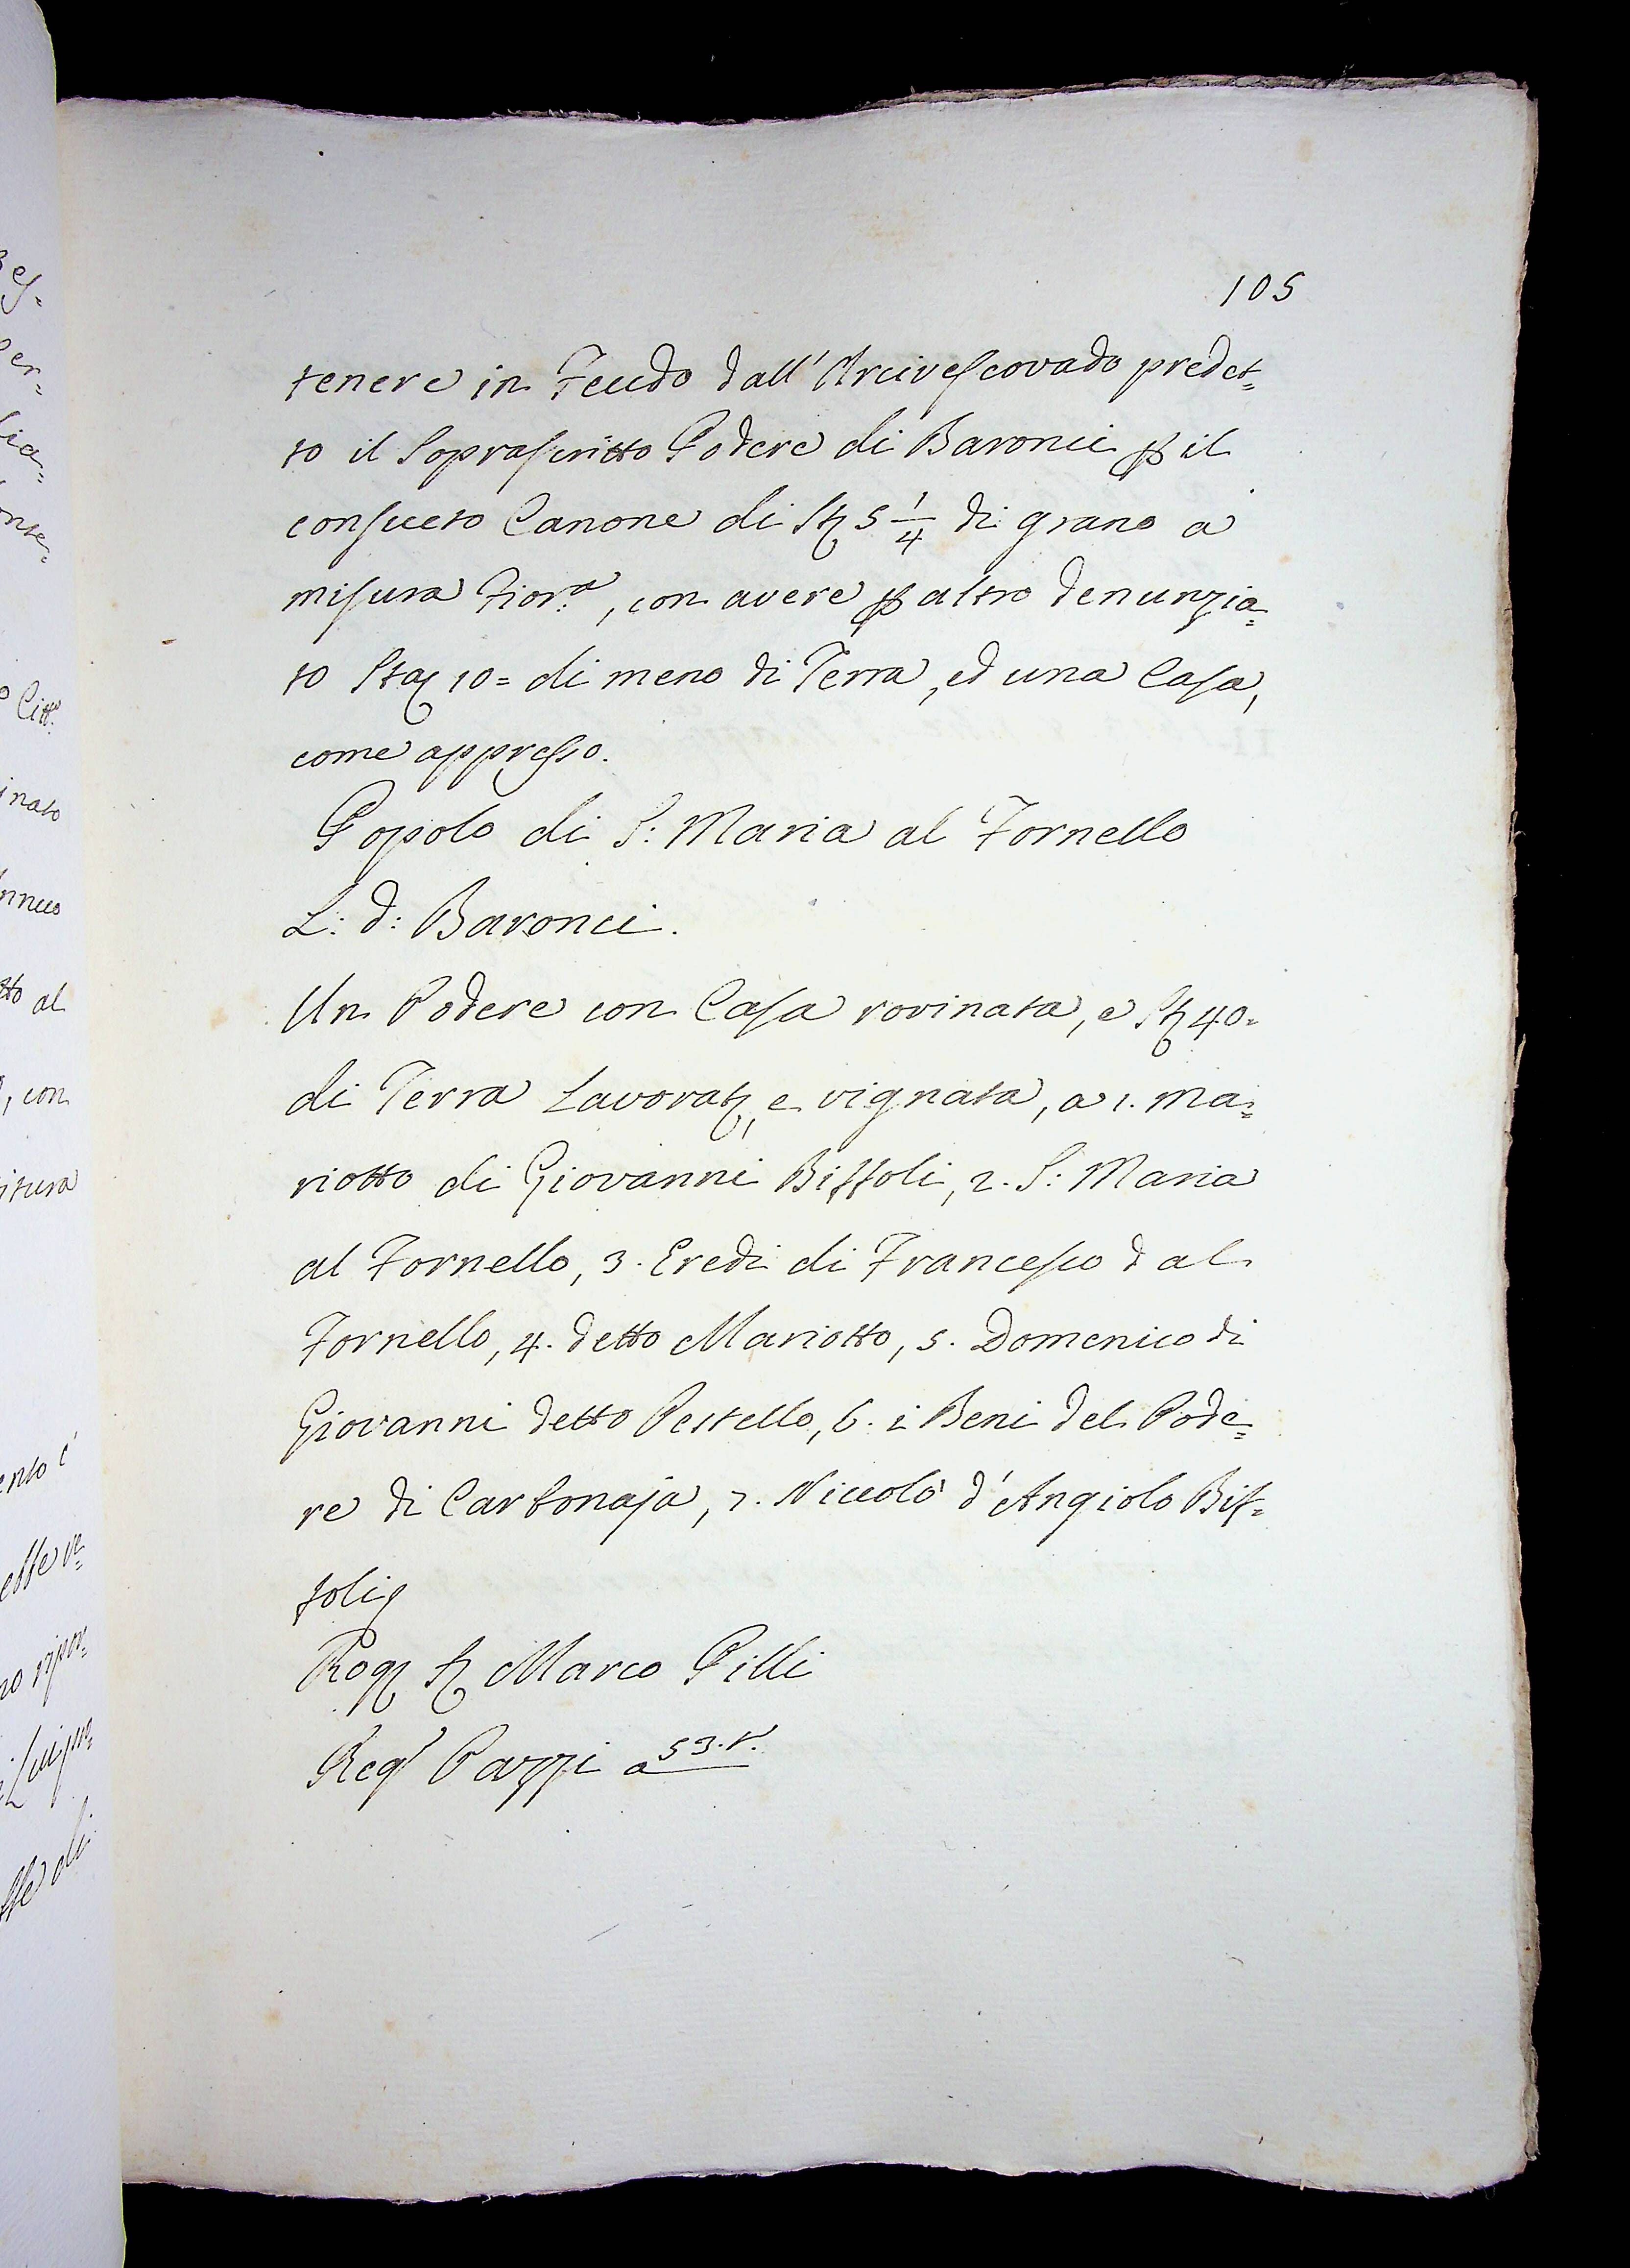 105
tenere in Feudo dall'Arcivescovado predet=
to il Soprascritto Podere di Baronci p il
consueto Canone di St 5 1/4 di grano a
misura Fior.ª, con avere p altro denunzia=
to Sta 10= di meno di Terra, ed una Casa,
come appresso.
Popolo di S: Maria al Fornello
L: d: Baronci.
Un Podere con Casa rovinata, e St 40=
di Terra Lavorat, e vignata, a 1. Ma=
riotto di Giovanni Biffoli, 2. S: Maria
al Fornello, 3. Eredi di Francesco dal
Fornello, 4. detto Mariotto, 5. Domenico di
Giovanni detto Pestello, 6. i Beni del Pode=
re di Carbonaja, 7. Niccolò d'Angiolo Bif=
foli
Rog S Marco Pilli
Reg Pazzi a 53.t.